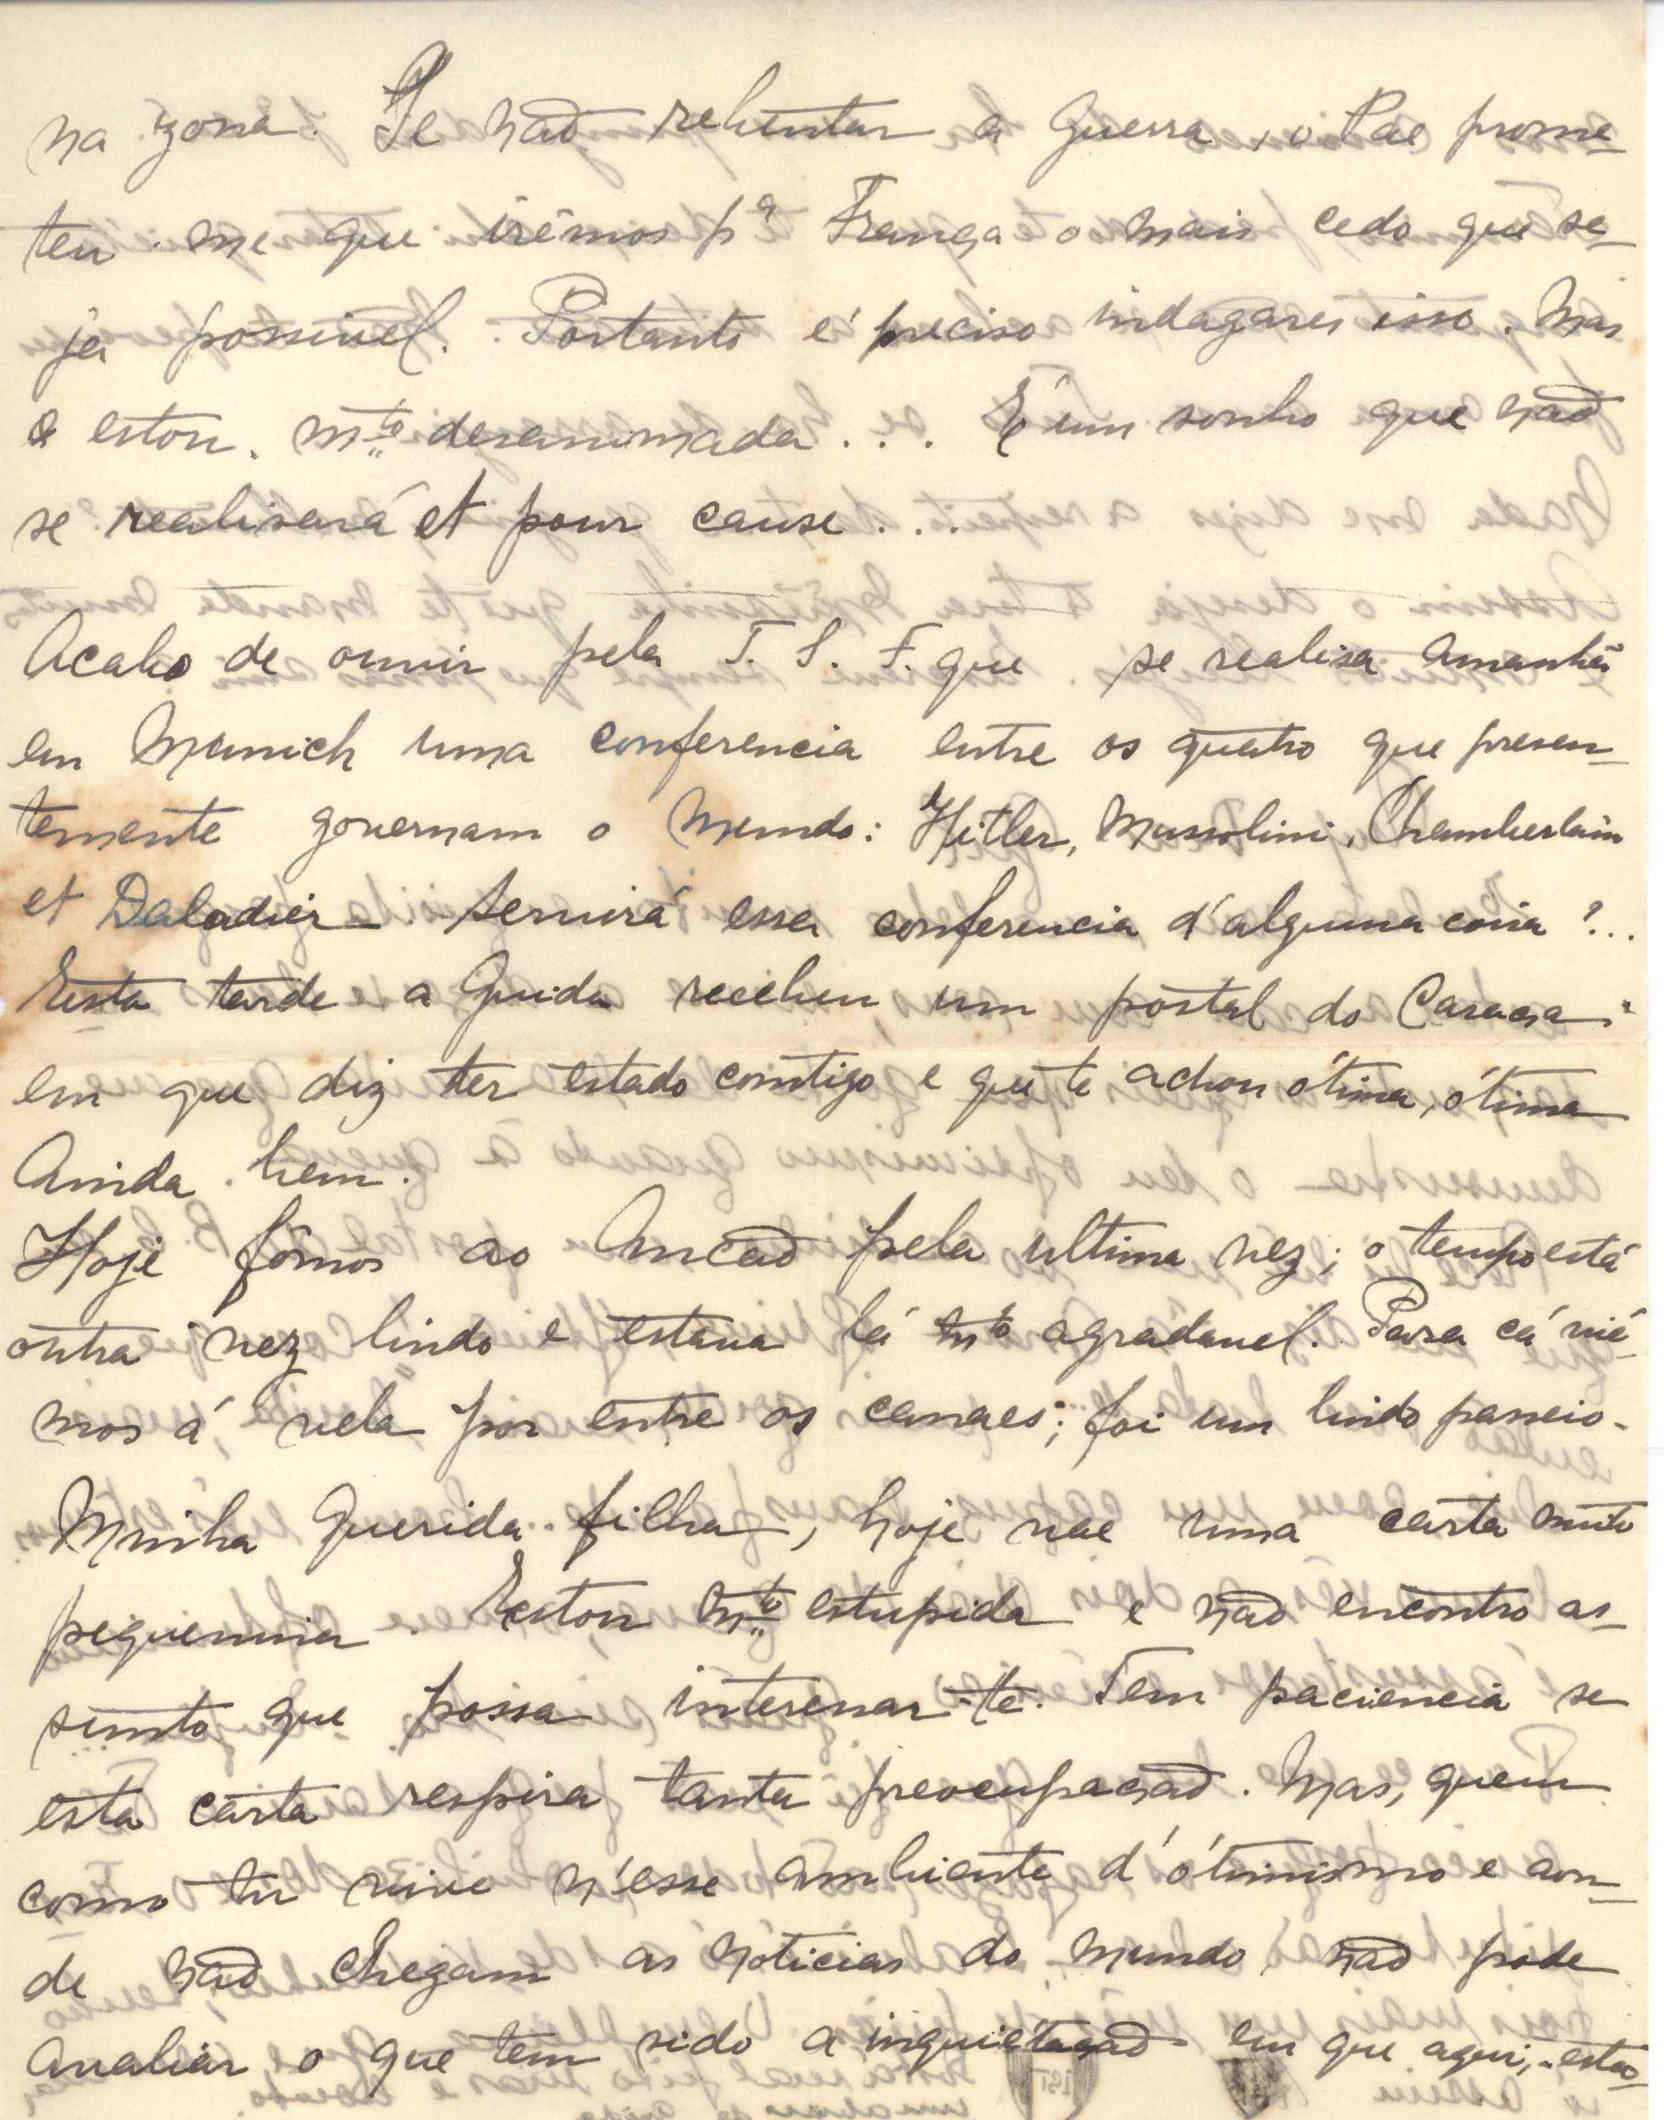 na zona. Se não rebentar a guerra, o Pae prome-
teu-me que irêmos pª França o mais cedo que se-
ja possivel. Portanto é preciso indagares isso. Mas
estou mto desanimada... É um sonho que não
se realisará et pour cause...
Acabo de ouvir pela T. S. F. que se realisa amanhã
em Munich uma conferencia entre os quatro que presen-
temente governam o mundo: Hitler, Mussolini, Chamberlain
et Daladier. Servirá essa conferencia d'alguma coisa?...
Esta tarde a Guida recebeu um postal do
em que diz ter estado comtigo e que te achou ótima, ótima
Ainda bem.
Hoje fômos ao Ancão pela ultima vez; o tempo está
outra vez lindo e estava lá mto agradavel. Para cá vié-
mos á vela por entre os canaes; foi um lindo passeio.
Minha querida filha, hoje vae uma carta muito
pequenina. Estou mto estupida e não encontro as-
sunto que possa interessar-te. Tem paciencia se
esta carta respira tanta preocupação. Mas, quem
como tu vive n'esse ambiente d'ótimismo e aon-
de não chegam as noticias do mundo, não pode
avaliar o que tem sido a inquietação em que aqui, estão